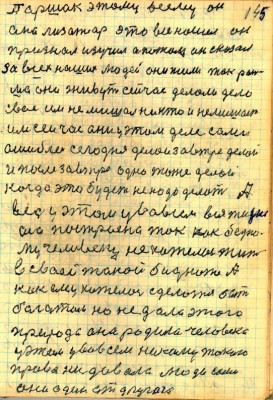 145
Паршак этому всему он
анализатор это все понял он
признал изучил а потом он сказал
за всех наших людей они жили так ра
та они живут сейчас делали дело
свое им не мешал никто и не мешает
им сейчас они у этом деле сами
ошиблись сегодня делай завтре делай
и после завтре одно тоже делай
когда это будет не надо делать А
ведь у этом у во всем вся жизня
она построена так как бедно
му человеку не хотелось жит
в своей такой бедноте А
как ему хотелось сделатся быть
богатым но не дала этого
природа она родила человека
у этом у во всем никому такого
права не давала люди сами
они один от другого